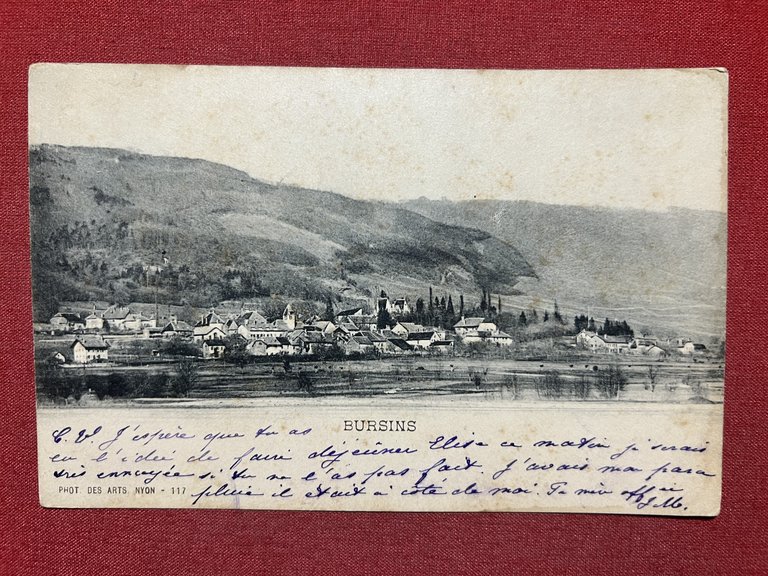 BURSINS
C. V. J'espère que tu as
eu l'idée de faire déjeûner Elise ce matin je serais
très ennuyée si tu ne l'as pas fait. J'avais mon para
pluie il était à côté de moi.
PHOT. DES ARTS, NYON - 117